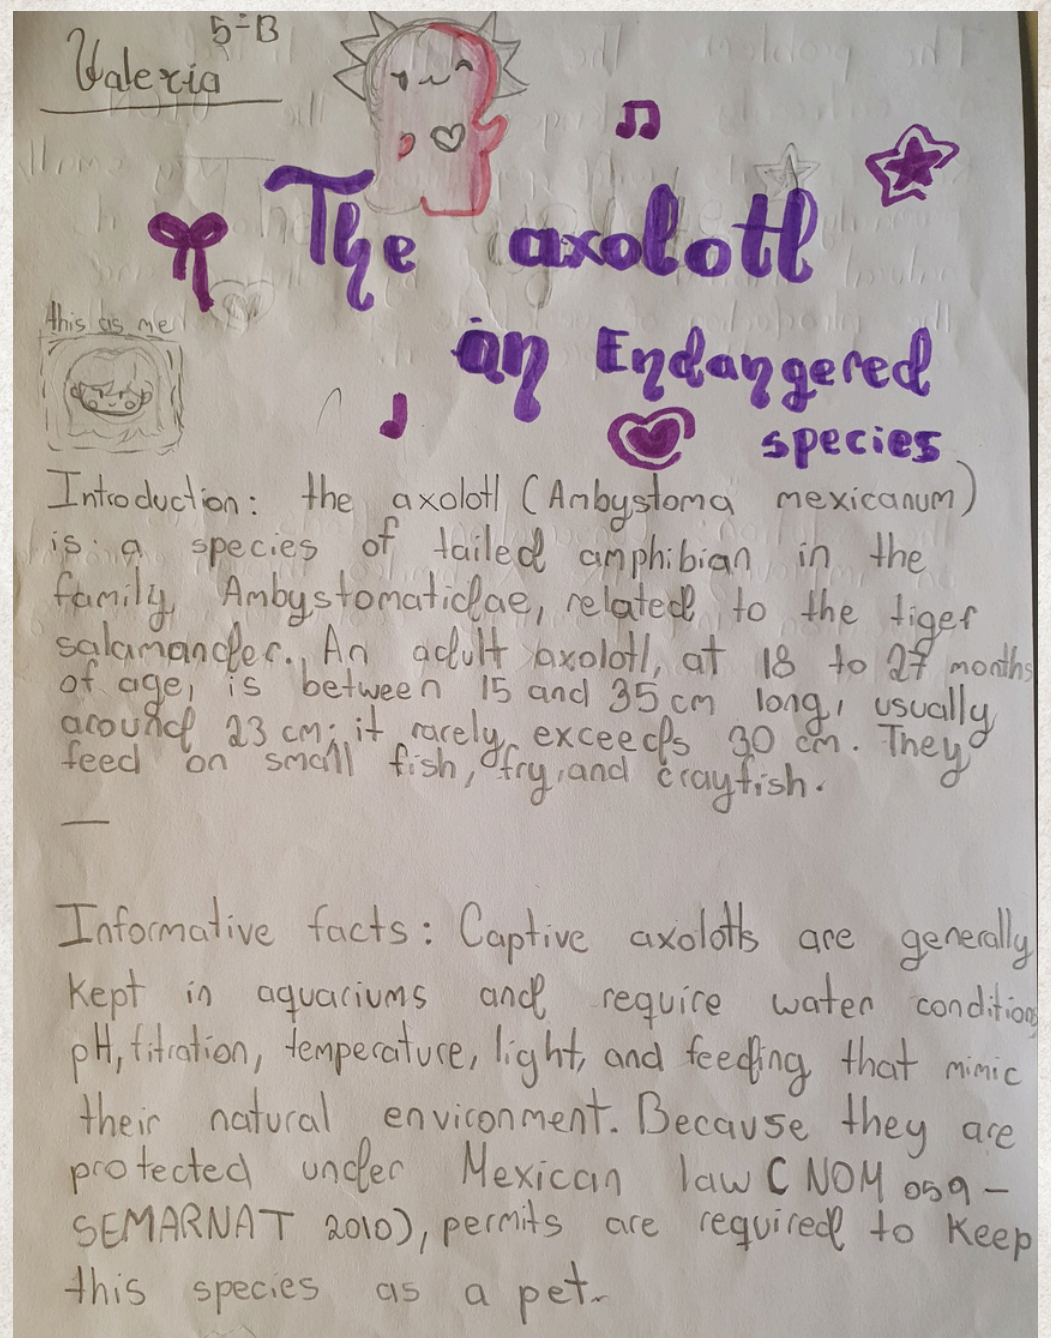 5-B
Valeria
The axolotl
this as me
an Endangered
species
Introduction: the axolotl (Ambystoma mexicanum)
is a species of tailed amphibian in the
family Ambystomatidae, related to the tiger
salamander. An adult axolotl, at 18 to 27 months
of age, is between 15 and 35 cm long, usually
around 23 cm; it rarely exceeds 30 cm. They
feed on small fish, fry, and crayfish.
Informative facts: Captive axolotls are generally
kept in aquariums and require water conditions
pH, titration, temperature, light, and feeding that mimic
their natural environment. Because they are
protected under Mexican law C NOM 059-
SEMARNAT 2010), permits are required to keep
this species as a pet.